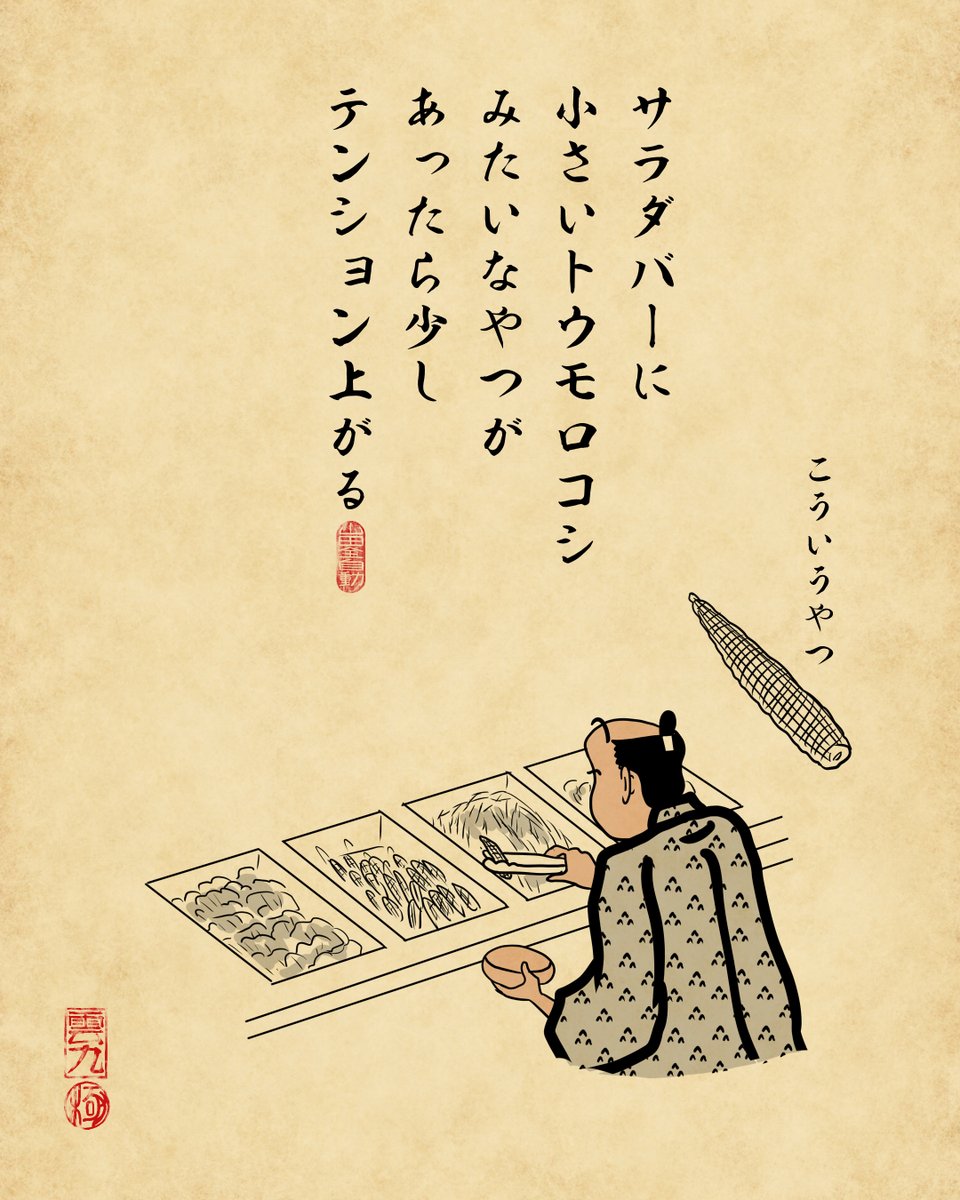 サラダバーに
小さいトウモロコシ
みたいなやつが
あったら少し
テンション上がる
山田全自動
こういうやつ